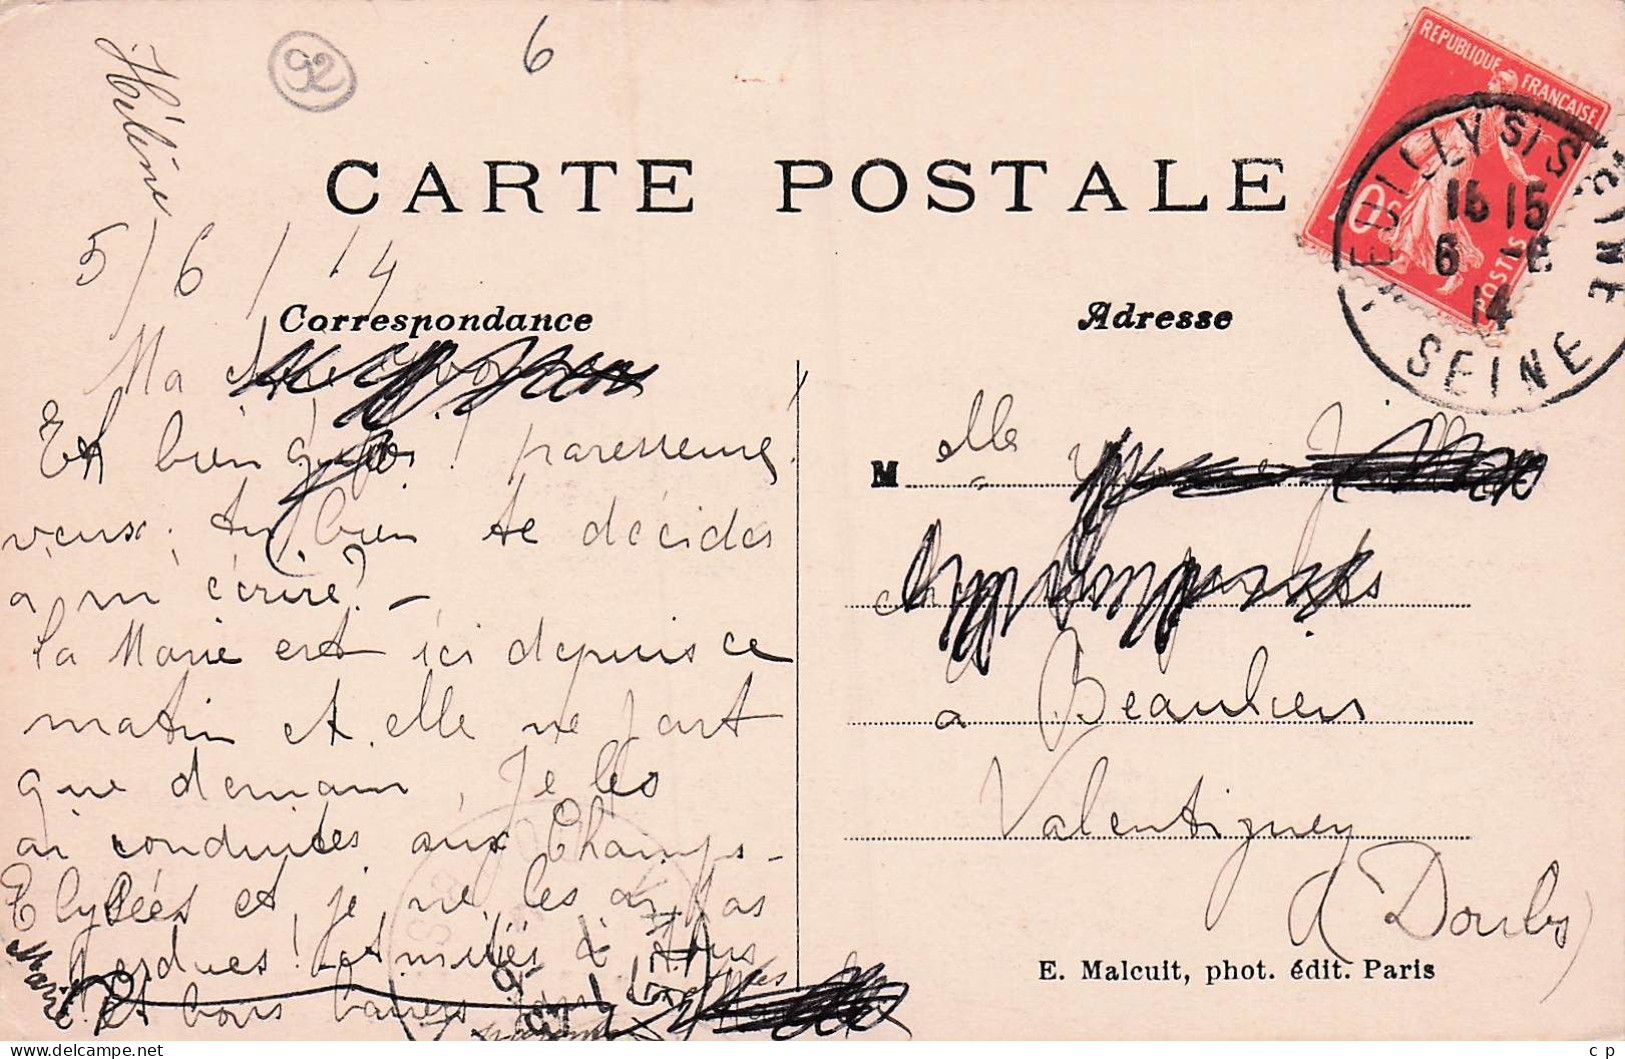 Hélène
92
6
REPUBLIQUE FRANÇAISE
10
POSTES
NEUILLY S/ SEINE
16 15
6 -6
14
SEINE
CARTE POSTALE
5/6/14
Correspondance
Adresse
Ma
Eh bien ! paresseuse,
veux-tu bien te décider
à m'écrire? –
la Marie est ici depuis ce
matin et elle ne part
que demain, Je les
ai conduites aux Champs-
Elysées et je ne les ai pas
perdues! amitiés à tous
Et bons baisers
Marie
Melle
à Beaulieu
Valentigney
(Doubs)
E. Malcuit, phot. édit. Paris
c p